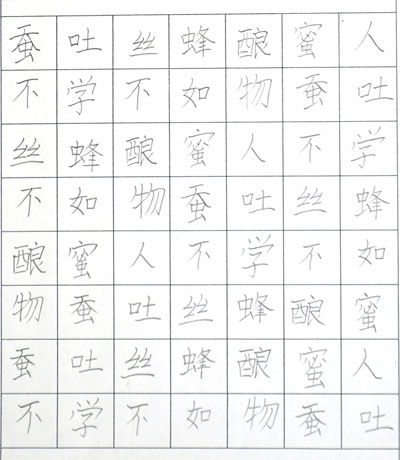 蚕吐丝蜂酿蜜人
不学不如物蚕吐
丝蜂酿蜜人不学
不如物蚕吐丝蜂
酿蜜人不学不如
物蚕吐丝蜂酿蜜
蚕吐丝蜂酿蜜人
不学不如物蚕吐